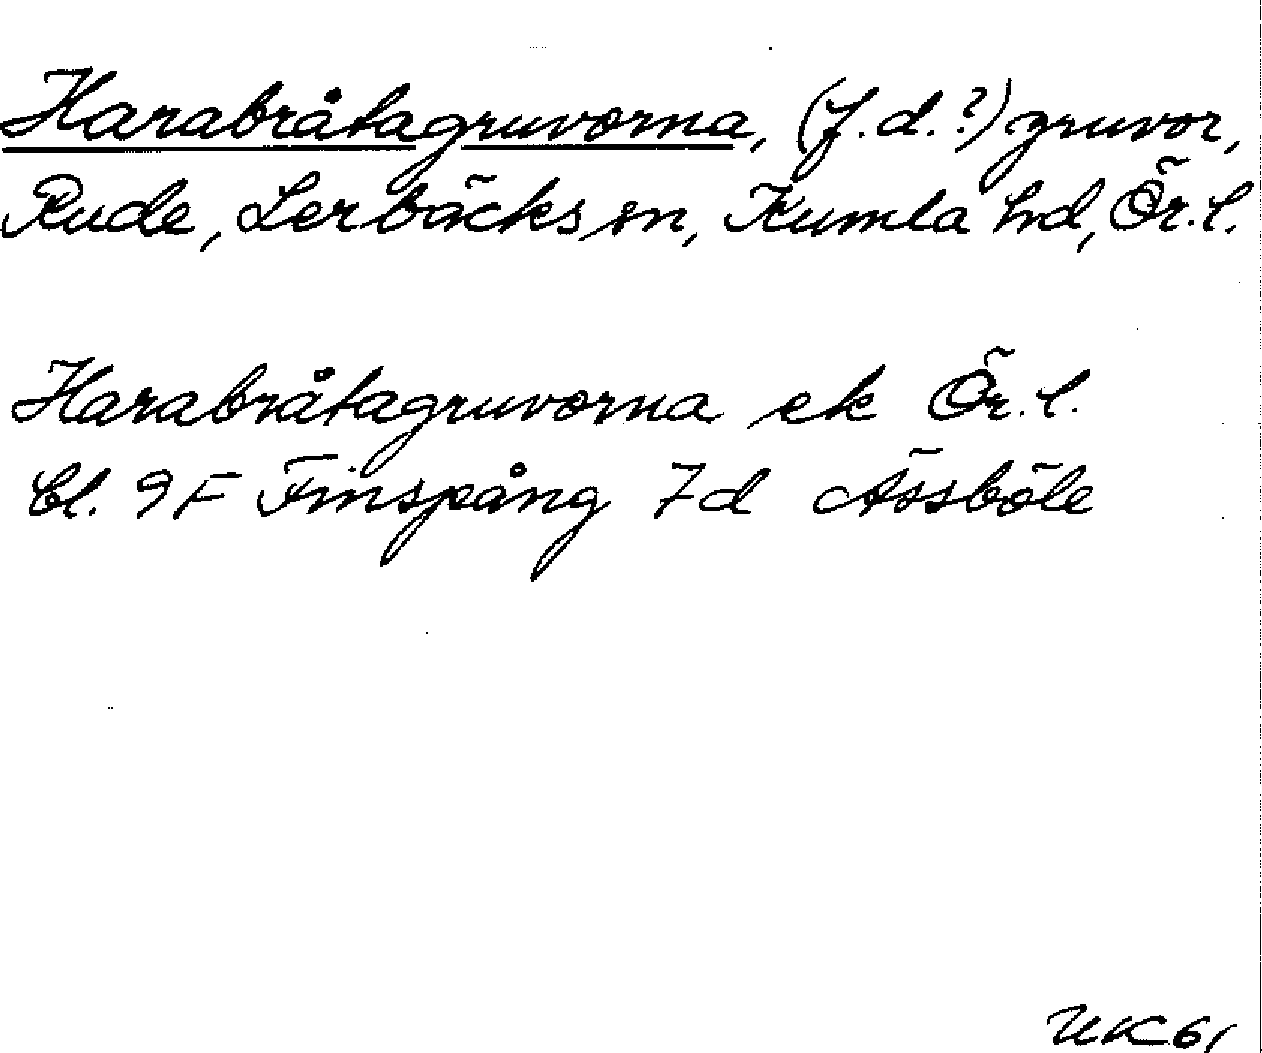 Harabråtagruvorna, (f.d.?) gruvor,
Rude, Lerbäcks sn, Kumla hd, Ör.l.
Harabråtagruvorna ek Ör.l.
bl. 9F Finspång 7d Åssböle
UK 61